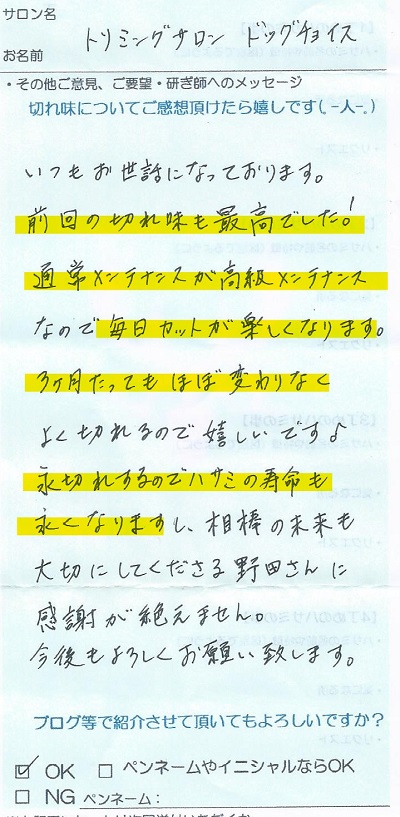 サロン名
トリミングサロン ドッグチョイス
お名前
・その他ご意見、ご要望・研ぎ師へのメッセージ
切れ味についてご感想頂けたら嬉しです(_ｰ人ｰ_)
いつもお世話になっております。
前回の切れ味も最高でした!
通常メンテナンスが高級メンテナンス
なので毎日カットが楽しくなります。
3ヶ月たってもほぼ変わりなく
よく切れるので嬉しいです♪
永切れするのでハサミの寿命も
永くなりますし、相棒の未来も
大切にしてくださる野田さんに
感謝が絶えません。
今後もよろしくお願い致します。
ブログ等で紹介させて頂いてもよろしいですか？
☑ OK □ ペンネームやイニシャルならOK
□ NG ペンネーム：